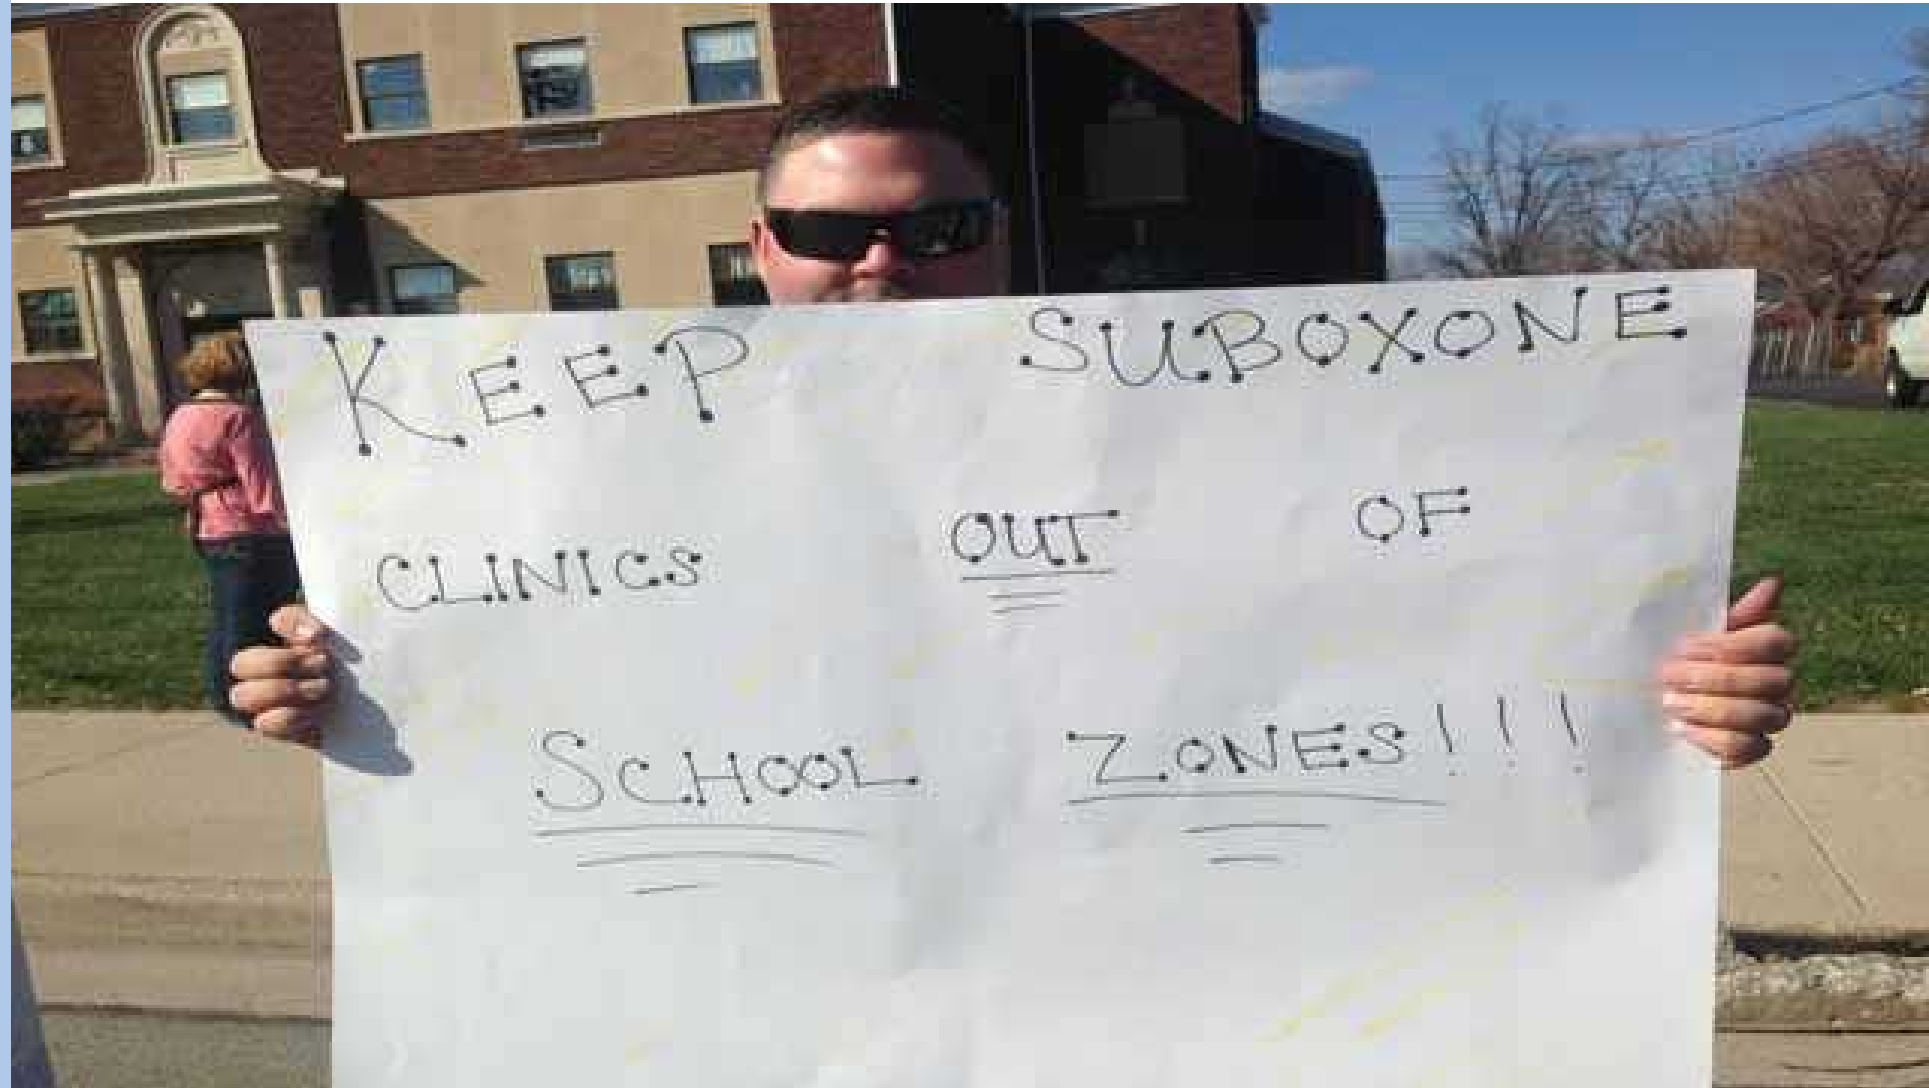 KEEP SUBOXONE
CLINICS OUT OF
SCHOOL ZONES!!!